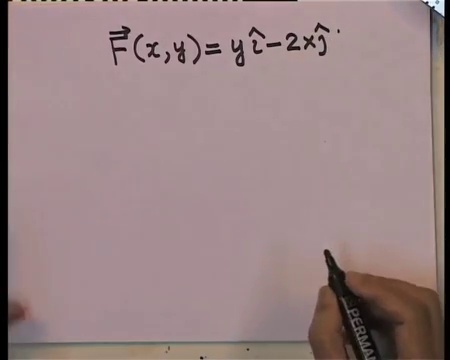 F⃗(x,y) = yî − 2xĵ
PERMA